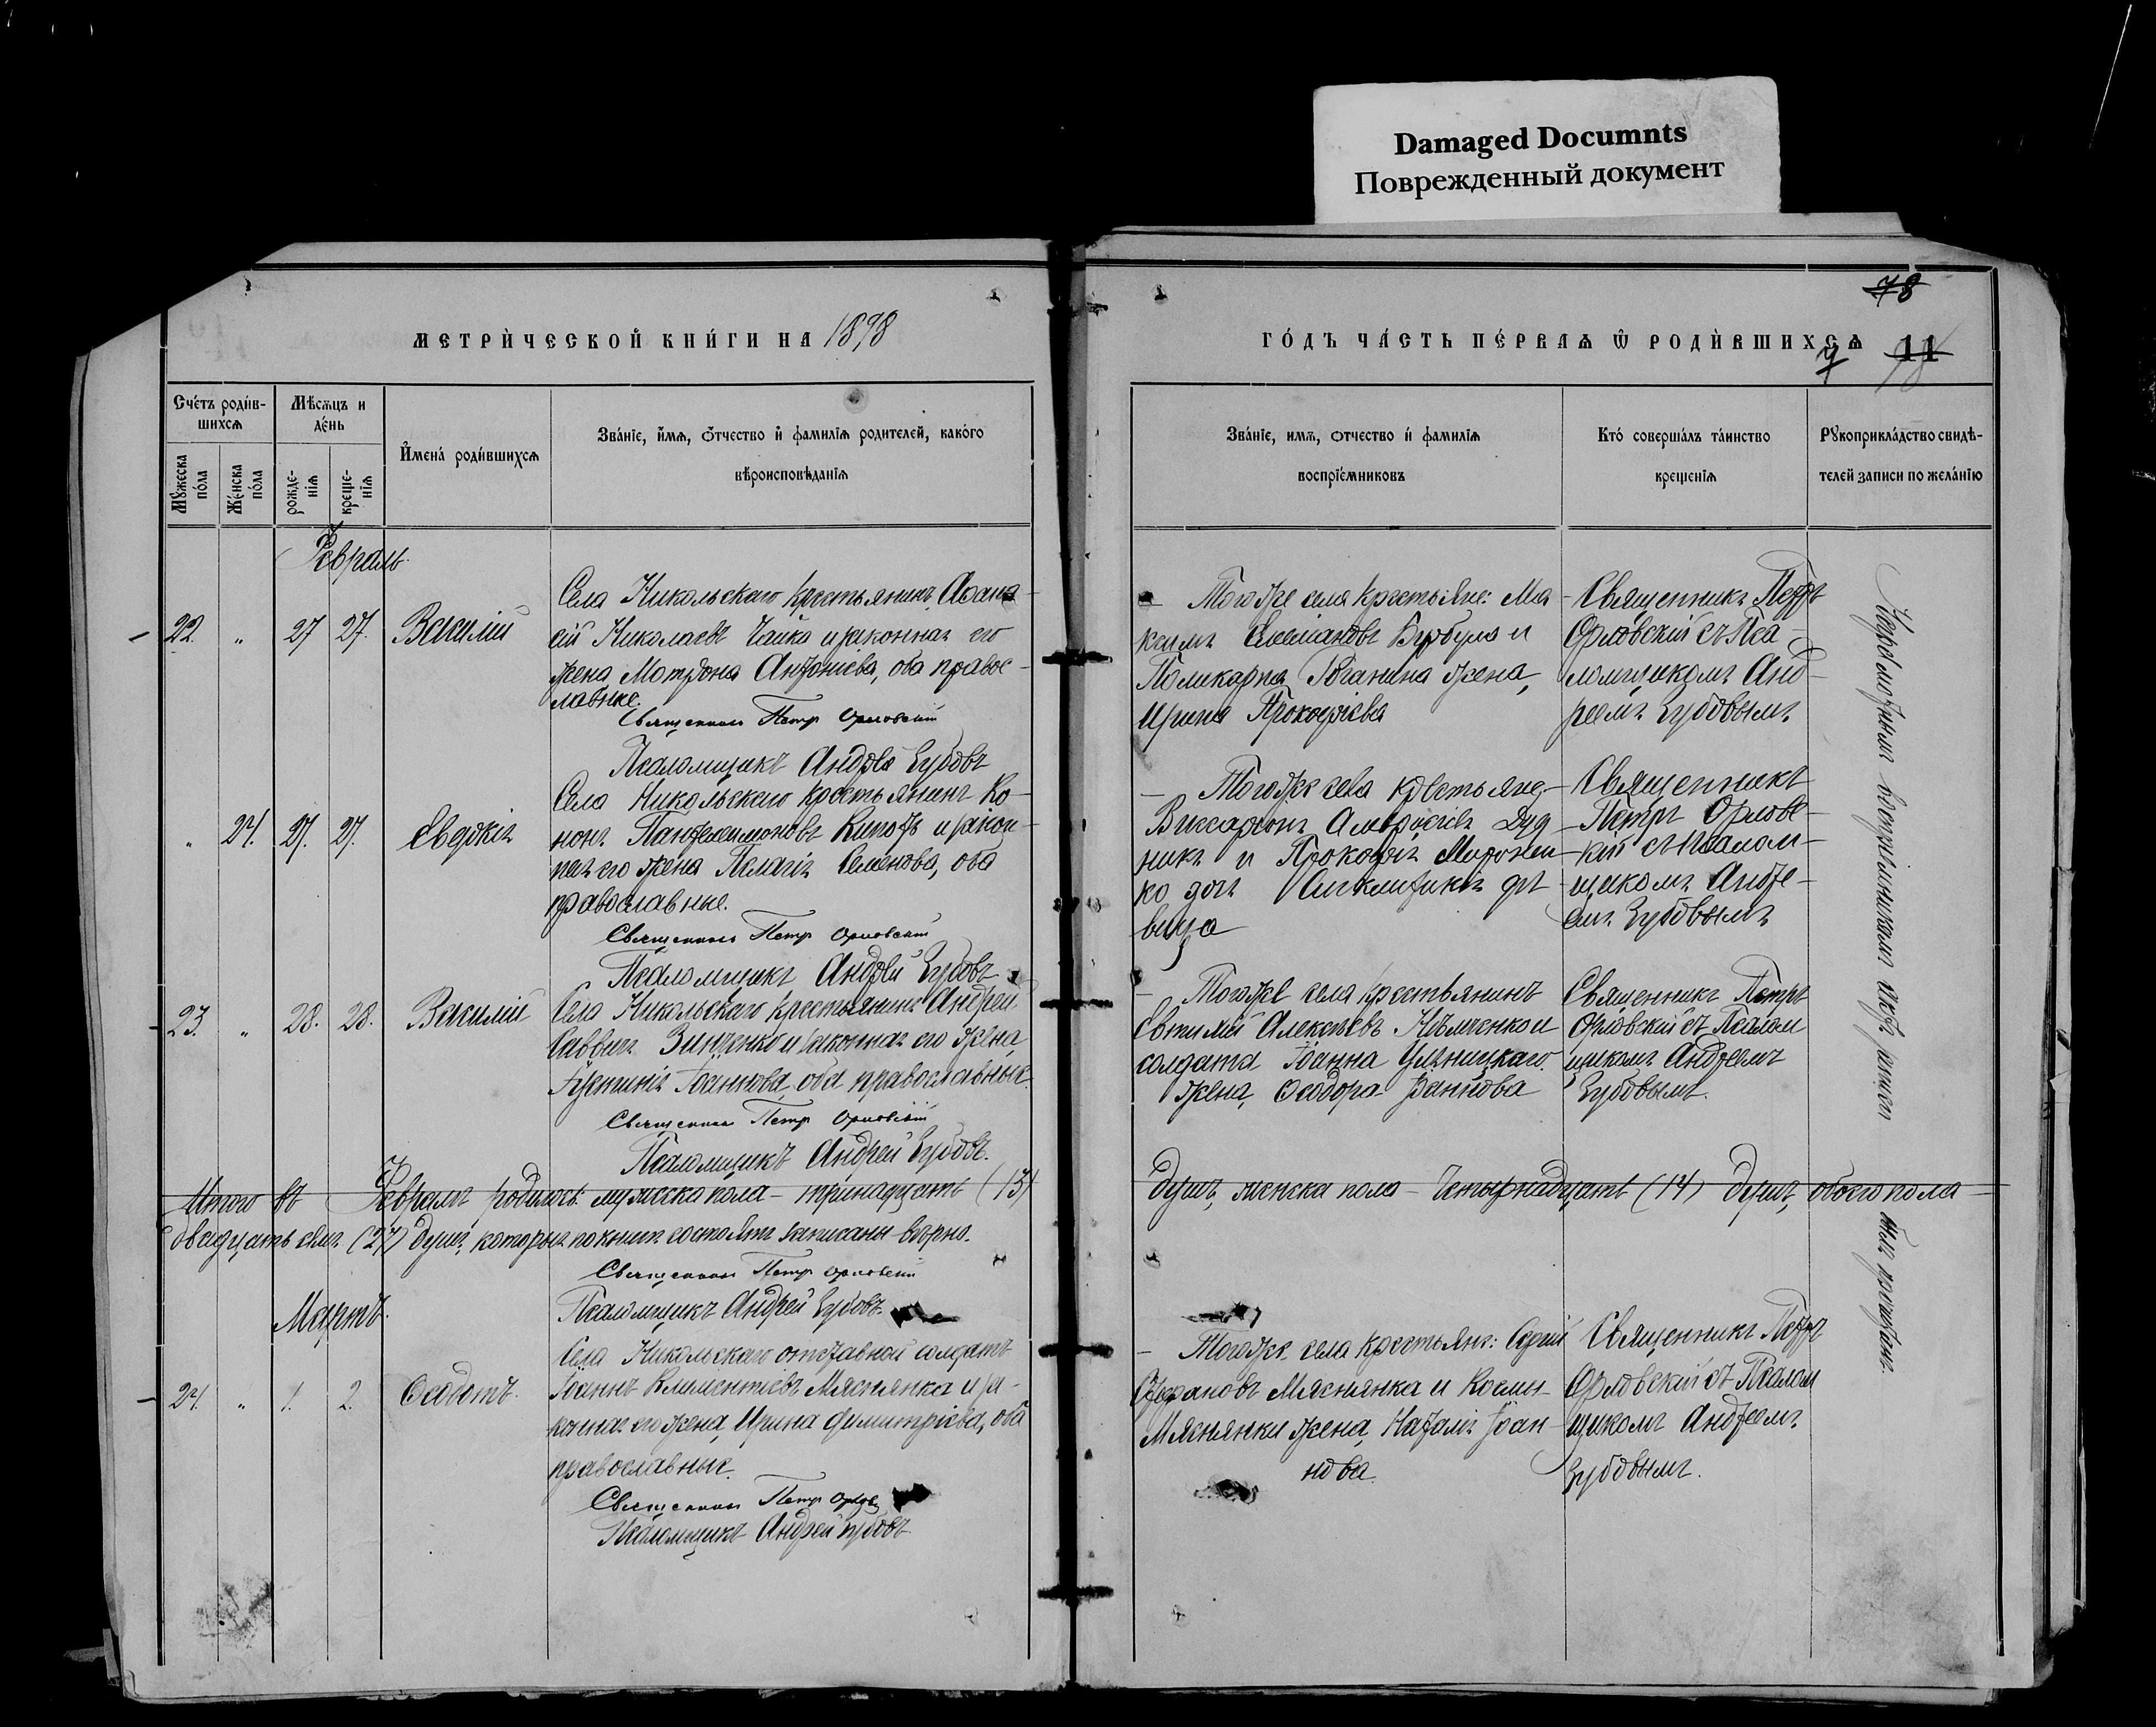 Damaged Documnts
Поврежденный документ
78
МЕТРИ́ЧЕСКОЙ КНИ́ГИ НА 1898
ГО́ДЪ ЧА́СТЬ ПЕ́РВАѦ Ѡ РОДИ́ВШИХСѦ 11
7
Сче́тъ роди́в-
шихсѧ
Мѣсѧцъ и
де́нь
Мꙋжеска
по́ла
Же́нска
по́ла
рожде-
нїѧ
креще-
нїѧ
И҆мена́ роди́вшихсѧ
Зва́нїе, и҆́мѧ, ѻ҆́тчество и҆ фами́лїѧ родителей, како́го
вѣроисповѣданїѧ
Зва́нїе, имѧ, ѻтчество и҆ фамилїѧ
воспрїе́мниковъ
Кто́ соверша́лъ та́инство
крещенїѧ
Рꙋкоприкла́дство свидѣ-
телей записи по жела́нїю
Февраль.
22. " 27 27. Василій
Села Никольскаго крестьянинъ Аѳана-
сій Николаевъ Чайка и законная его
жена Матрона Антоніева, оба правос-
лавные.
Священникъ Петръ Орловскій
Псаломщикъ Андрей Зубовъ
Того же села крестьяне: Ма-
ксимъ Бурбула и
Поликарпа жена,
Ирина Прокофіева
Священникъ Петръ
Орловскій съ Пса-
ломщикомъ Анд-
реемъ Зубовымъ
" 24. 27. 27. Евдокія
Села Никольскаго крестьянинъ Ко-
нонъ Пантелеимоновъ и закон-
ная его жена Пелагія Семенова, оба
православные.
Священникъ Петръ Орловскій
Псаломщикъ Андрей Зубовъ
Того же села крестьяне
Виссаріонъ Амвросіевъ Дуд-
никъ и Прокофія Миронен-
ко дочь дѣ-
вица
Священникъ
Петръ Орловс-
кій съ псалом-
щикомъ Андре-
емъ Зубовымъ
23. " 28. 28. Василій
Села Никольскаго крестьянинъ Андрей
Саввинъ Зинченко и законная его жена
Іустинія Іоаннова, оба православные.
Священникъ Петръ Орловскій
Псаломщикъ Андрей Зубовъ.
Того же села крестьянинъ
Евтимій Алексѣевъ Нѣмченко и
солдата Іоанна
жена, Ѳеодора Іоаннова
Священникъ Петръ
Орловскій съ Псалом
щикомъ Андреемъ
Зубовымъ.
Итого въ Февралѣ родилось: мужеска пола – тринадцать (13)
душъ, женска пола – четырнадцать (14) душъ, обоего пола –
двадцать семь (27) душъ, которые по книгѣ состоятъ записаны вѣрно.
Священникъ Петръ Орловскій
Псаломщикъ Андрей Зубовъ.
Мартъ.
24. " 1. 2. Ѳеодотъ.
Села Никольскаго отставной солдатъ
Іоаннъ Климентіевъ Мяснянка и за-
конная его жена, Ирина Димитріева, оба
православные.
Священникъ Петръ Орлов
Псаломщикъ Андрей Зубовъ
Того же села крестьяне: Сергій
Стефановъ Мяснянка и Космы
Мяснянки жена, Наталія Іоан
нова.
Священникъ Петръ
Орловскій съ Псалом
щикомъ Андреемъ
Зубовымъ.